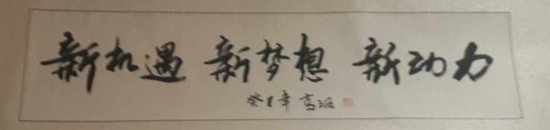 新机遇 新梦想 新动力
癸巳年